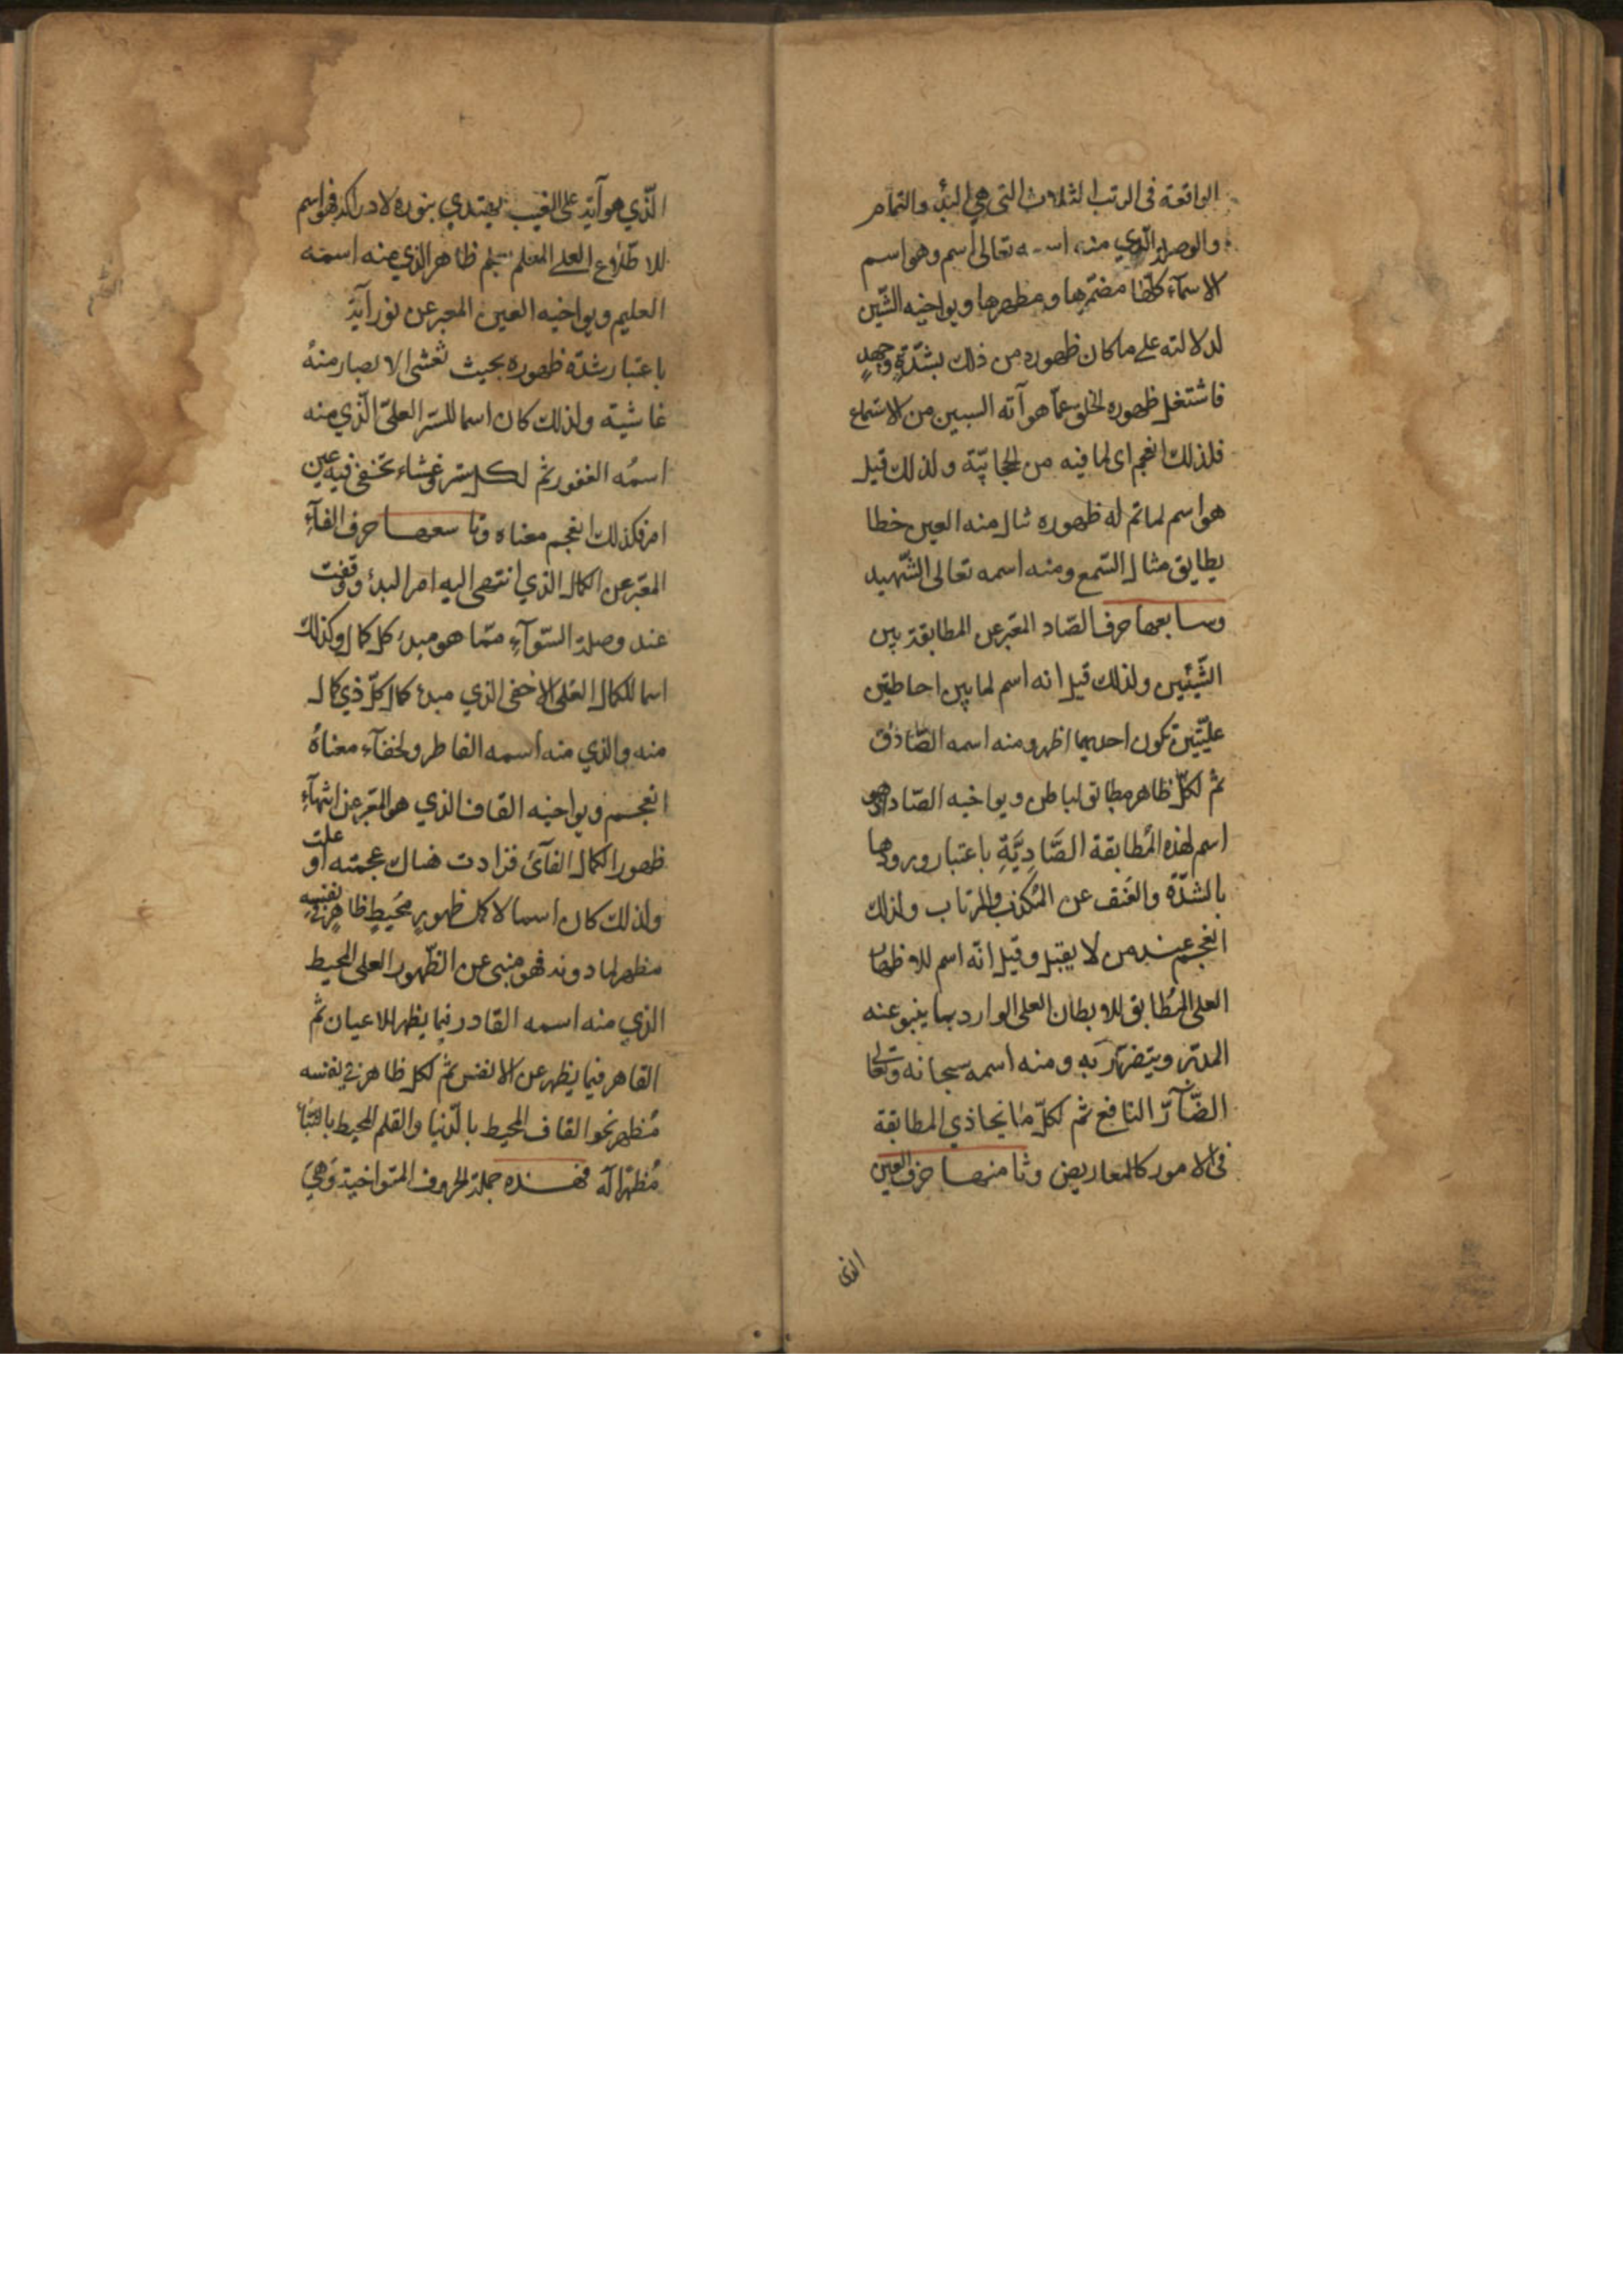 الواقعة فى الرتب الثلاث التى هي البدء والتمام
والوصلة الذي منه اسمه تعالى اسم وهو اسم
الاسمآء كلها مضمرها ومظهرها ويواخيه الشّين
لدلالته على ما كان ظهوره من ذلك بشدّةٍ وجهدٍ
فاشتغل ظهوره الخلق عمّا هو آته السببين من الاستماع
فلذلك انعجم اى لما فيه من الحجابيّة ولذلك قيل
هو اسم لما تم له ظهوره ثال منه العين خطا
يطابق مثال السّمع ومنه اسمه تعالى الشّهيد
وسابعها حرف الصّاد المعبّر عن المطابقة بين
الشّيئين ولذلك قيل انه اسم لما بين احاطتين
عليّتين تكون احديهما اظهر ومنه اسمه الصّادق
ثم لكلّ ظاهر مطابق لباطن ويواخيه الضّاد اذ هو
اسم لهذه المُطابقة الصَّادِيَّةِ باعتبار ورودها
بالشدّة والعُنف عن المُكذب والمرتاب ولذلك
انعجم عند من لا يقبل وقيل انّه اسم للاظهار
العلى المُطابق للابطان العلى الوارد بما ينبو عنه
المدبّر ويتضرّر به ومنه اسمه سبحانه وتعالى
الضّآرّ النافع ثم لكلّ ما يحاذي المطابقة
فى الامور كالمعاريض وثامنها حرف العين
الذى
الّذي هو آية على الغيب يهتدي بنوره لادراكه فهو اسم
للاطلاع العلى المعلم بعلم ظاهر الذي منه اسمه
العليم ويواخيه الغين المعبر عن نور آية
باعتبار شدّة ظهوره بحيث تغشى الابصار منهُ
غاشية ولذلك كان اسما للستر العلىّ الّذي منه
اسمُه الغفور ثم لكل ستر وغشاء تخفى فيه عين
امر فكذلك انعجم معناه وتاسعها حرف الفآءِ
المعبّر عن الكمال الذي انتهى اليه امر البدئ ووقفت
عند وصلة السّوآءِ ممّا هو مبدئ كل كمال وكذلك
اسما للكمال العلى الاخفى الذي مبدء كمال كلّ ذي كمال
منه والذي منه اسمه الفاطر ولخفآء معناهُ
انعجم ويواخيه القاف الذي هو المعبّر عن انتهآءِ
ظهور الكمال الفآئ فزادت هناك عجمته او علت
ولذلك كان اسما لاكمل ظهورٍ مُحيطٍ ظاهرٍ فى نفسِهِ
مظهر لما دونه فهو منبى عن الظّهور العلى المحيط
الذي منه اسمه القادر فيما يظهر للاعيان ثم
القاهر فيما يظهر عن الانفس ثم لكل ظاهر فى نفسه
مُظهر نحو القاف المحيط بالدّنيا والقلم المحيط
مُظهرًا له فهذه جملة الحروف المتواخية وهيَ